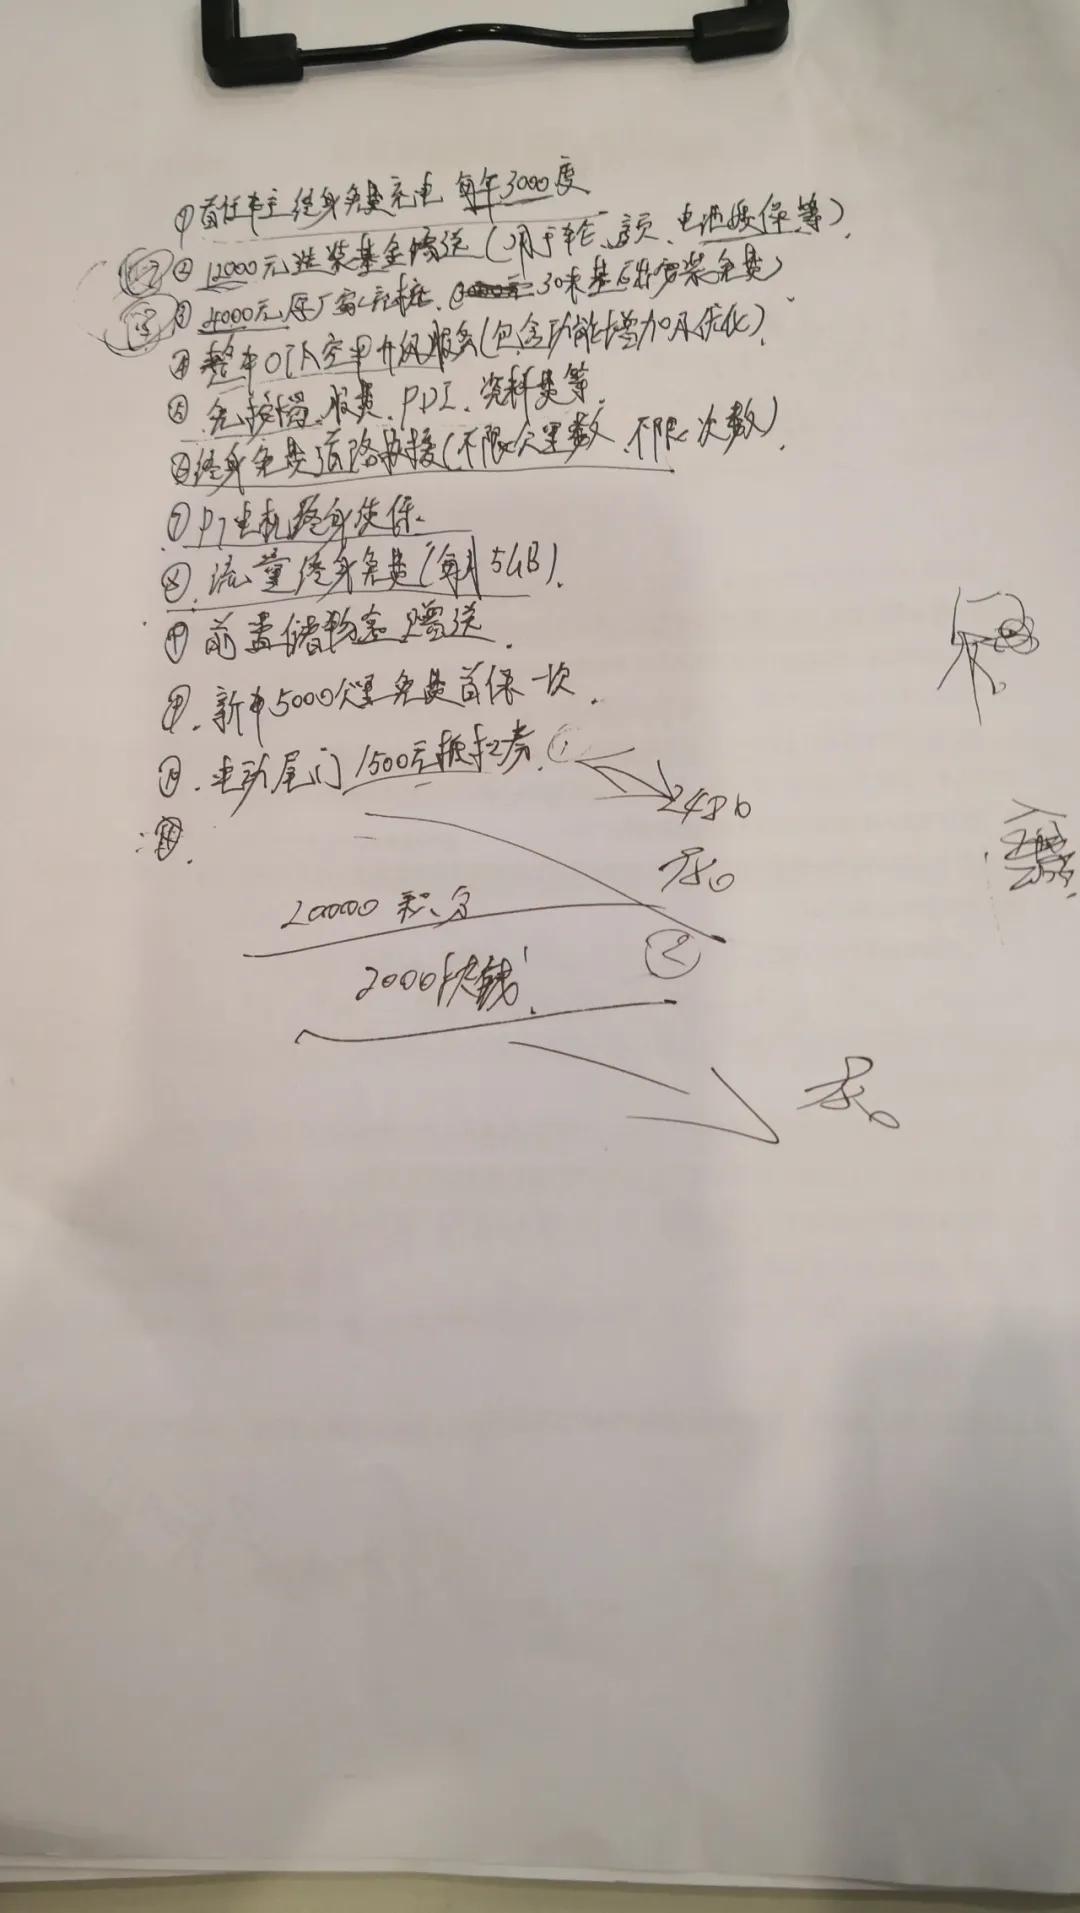 ①首任车主终身免费充电 每年3000度
② 12000元选装基金赠送(用于轮、顶、电池质保等).
③ 4000元原厂家充桩. 30米基础安装免费)
④ 整车OTA空中升级服务(包含功能增加及优化).
⑤ 免按揭服费、PDI、资料费等.
⑥终身免费道路救援(不限公里数、不限次数).
⑦ 电机终身质保.
⑧. 流量终身免费(每月5GB).
前盖储物盒赠送.
新车5000公里免费首保一次.
电动尾门1500元抵扣券. ①
20000积分
②
2000块钱